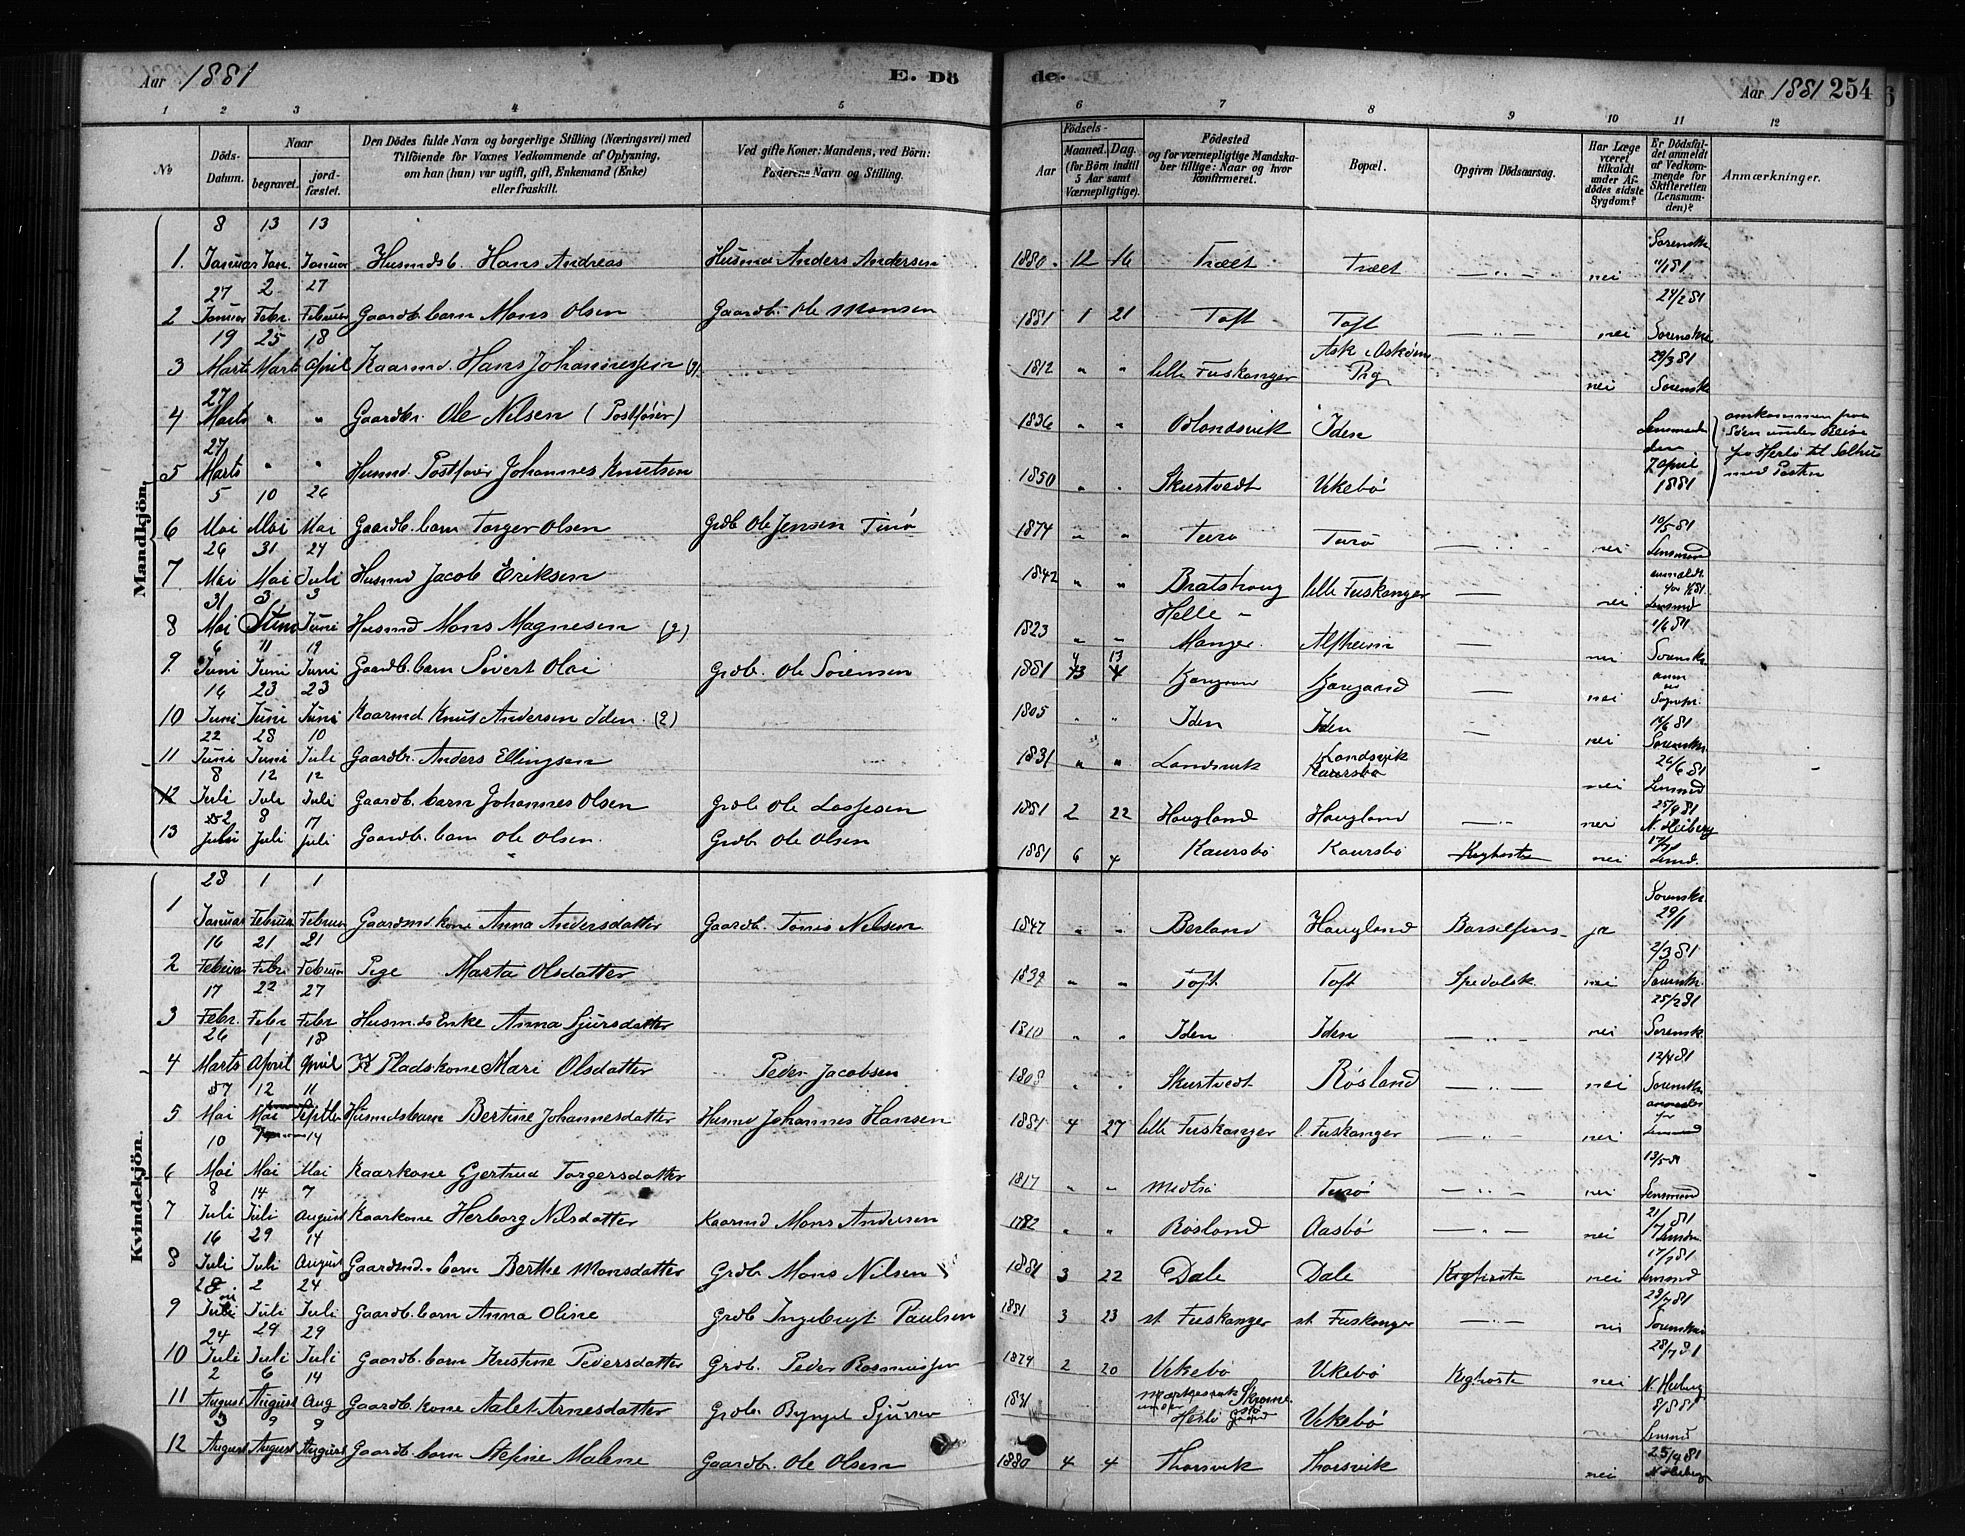 Aar 1881
E. Dö
de.
Aar 1881 254
1 2 3 4 5 6 7 8 9 10 11 12
№
Döds-Datum.
Naar
begravet.
jord-fæstet.
Den Dödes fulde Navn og borgerlige Stilling (Næringsvei) med
Tilföiende for Voxnes Vedkommende af Oplysning,
om han (hun) var ugift, gift, Enkemand (Enke)
eller fraskilt.
Ved gifte Koner: Mandens, ved Börn:
Faderens Navn og Stilling.
Födsels-
Aar
Maaned. Dag.
(for Börn indtil
5 Aar samt
Værnepligtige).
Födested
og for værnepligtige Mandska-
ber tillige: Naar og hvor
konfirmeret.
Bopæl.
Opgiven Dödsaarsag.
Har Læge
været
tilkaldt
under Af-
dödes sidste
Sygdom?
Er Dödsfal-
det anmeldt
af Vedkom-
mende for
Skifteretten
(Lensman-
den)?
Anmærkninger.
Mandkjön.
8 13 13
1. Januar Jan. Januar Husmdsb. Hans Andreas Husmd Anders Andersen 1880. 12 16 Træet Træet — " — nei Sorenskr.
27 2 27
2 Januar Febr. Februar Gaardb. barn Mons Olsen Gaardb. Ole Monsen 1881 1 21 Toft Toft — " — nei 24/2 81 Sorenskr.
19 25 18
3 Mart Mart April Kaarmd. Hans Johannessen 1812 " " lille Fuskanger Ask Askøens Prg nei 29/3 81 Sorensk
27
4 Marts " " Gaardbr. Ole Nilsen (Postfører) 1836 " " Odlandsvik Iden
27
5 Marts " " Husmd. Postfører Johannes Knutsen 1850 " " Skurtvedt Vikebö 7 April 1881
omkommen paa Søen under Reise fra Herlö til med Posten
5 10 26
6 Mai Mai Mai Gaardb. barn Torger Olsen Grdb Ole Jensen Turö 1874 " " Turö Turö — " — nei 10/5 81 Lensmand
26 31 24
7 Mai Mai Juli Husmd Jacob Eriksen 1842 " " Bratshoug lille Fuskanger — nei Lensmd
31 3 3
8 Mai Juni Juni Husmd Mons Magnesen (g) 1823 " " Helle - Manger Alfheim — nei 1/6 81 Sorenskr
6 11 19
9. Juni Juni Juni Gaardb. barn Sivert Olai Grdb. Ole Sörensen 1881 — nei
16 23 23
10 Juni Juni Juni Kaarmd Knut Andersen Iden 1805 " " Iden Iden — nei Sorenskr
22 28 10
11 Juni Juni Juli Gaardbr. Anders Ellingsen 1831 " " Landsvik Landsvik nei 26/6 81 Lensmd
8 12 12
12 Juli Juli Juli Gaardb. barn Johannes Olsen Grdb Ole 1881 2 22 Hougland Hougland — " — nei N. Heiberg
8 17
13 Juli Juli Gaardb. barn Ole Olsen. Grdb Ole Olsen 1881 6 4 Kaursbö Kaursbö Kighoste nei
Kvindekjön.
28 1 1
1 Januar Februar Februar Gaardmd kone Anna Andersdatter Gaardb. Tönis Nilsen 1847 " " Berland Hougland Barselfeber ja Sorenskr 29/1
16 21 21
2 Februar Febr. Februar Pige Marta Olsdatter 1839 " " Toft Toft Spedalsk. nei 2/3 81 Sorenskr.
17 22 27
3 Febr. Febr Febr Husmds Enke Anna Sjursdatter 1810 " " Iden Iden — " — nei 25/2 81 Sorensk.
26 1 18
4 Marts April April Pladskone Mari Olsdatter Peder Jacobsen 1808 " " Skurtvedt Røsland — " — nei 12/4 81 Sorenskr
12 11
5 Mai Mai Husmdsbarn Bertine Johannesdatter Husmd Johannes Hansen 1881 4 27 lille Fuskanger l. Fuskanger — " — nei Lensmd
10 14
6 Mai Mai Mai Kaarkone Gjertrud Torgersdatter 1817 " " Medtö Turö — " — nei 13/5 81 Lensmand
8 14 7
7 Juli Juli August Kaarkone Herborg Nilsdatter Kaarmd Mons Andersen 1782 " " Røsland Aasbö — " — nei
16 29 14
8 Juli Juli August Gaardmd.- barn Berthe Monsdatter Grdb. Mons Nilsen 1881 3 22 Dale Dale Kighoste nei Lensmd
28 2 24
9 Juli Juli Juli Gaardb. barn Anna Oline Grdb Ingebrigt Paulsen 1881 3 23 st. Fuskanger st. Fuskanger — " — nei Sorenskr
24 29 29
10 Juli Juli Juli Gaardb. barn Kristine Pedersdatter Grdb. Peder Rasmussen 2 20 Vikebö Vikebö Kighoste nei N. Heiberg
2 6 14
11 August August Aug Gaardb. kone Aalet Arnesdatter Grdb. Sjursen 1831 Herlö Vikebö 8/8 81 Lensmd
3 9 9
12 August August August Gaardb. barn Stefine Malene Gaardb. Ole Olsen 1880 4 4 Thorsvik Thorsvik nei N Heiberg